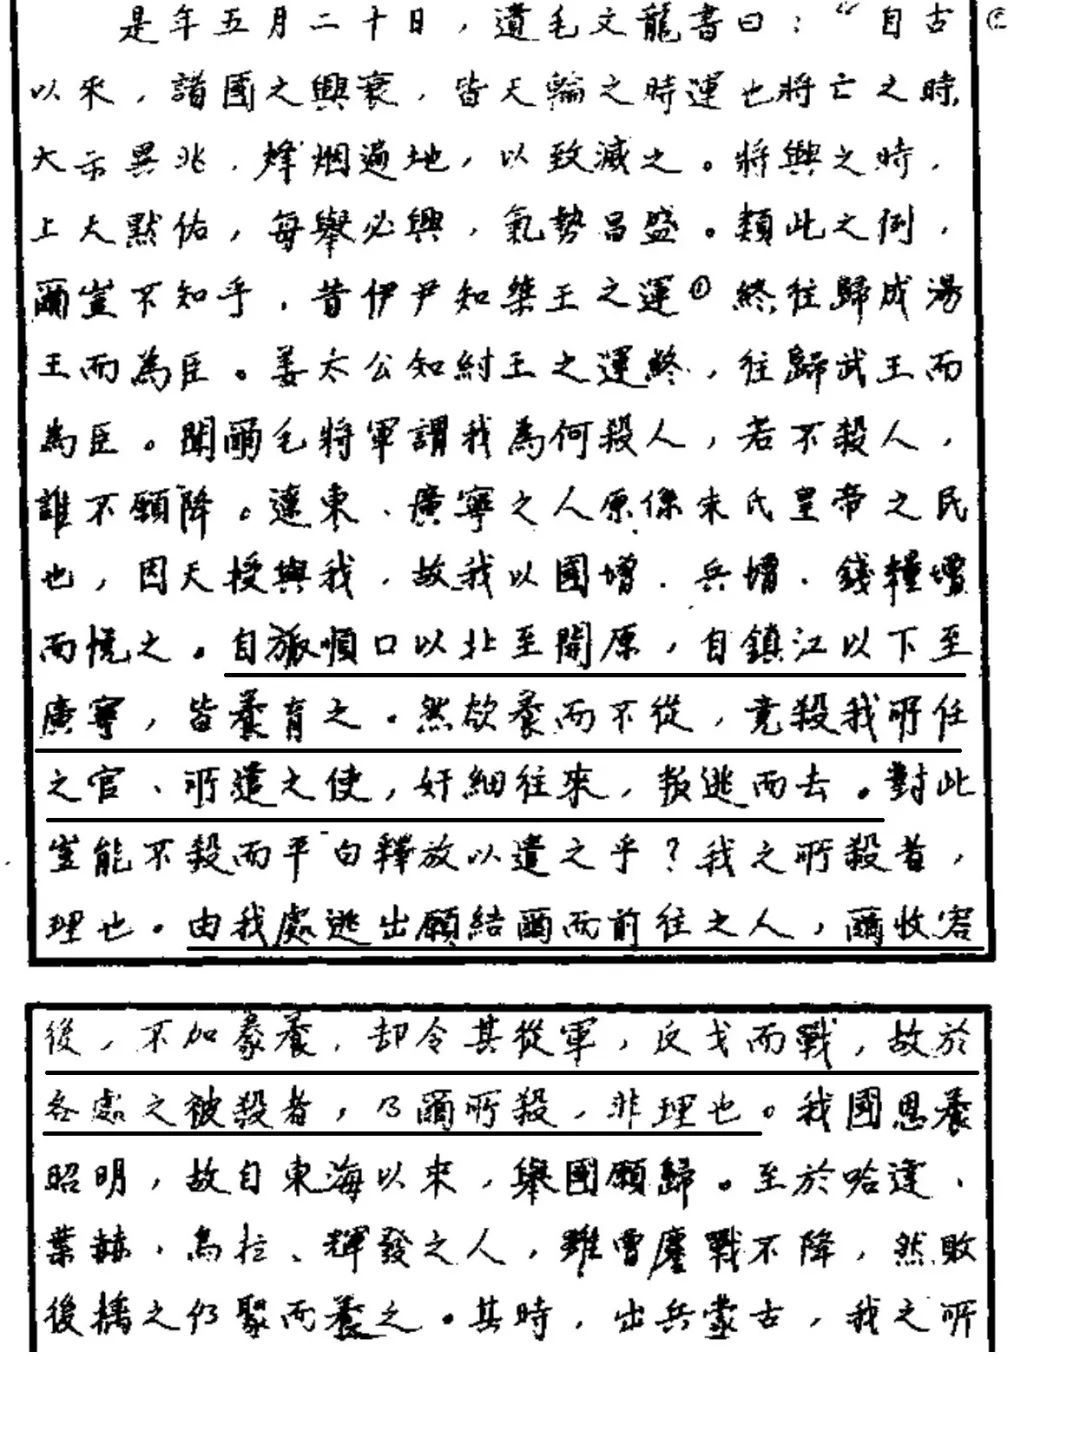 是年五月二十日，遺毛文龍書曰："自古
以來，諸國之興衰，皆天輪之時運也將亡之時，
大示異兆，烽烟遍地，以致滅之。將興之時，
上天默佑，每舉必興，氣勢昌盛。類此之例，
爾豈不知乎，昔伊尹知桀王之運①終，往歸成湯
王而為臣。姜太公知紂王之運終，往歸武王而
為臣。聞爾毛將軍謂我為何殺人，若不殺人，
誰不願降。遼東、廣寧之人原係朱氏皇帝之民
也，因天授與我，故我以國增、兵增、錢糧增
而悦之。自旅順口以北至開原，自鎮江以下至
廣寧，皆養育之。然欲養而不從，竟殺我所任
之官、所遣之使，奸細往來，叛逃而去。對此
豈能不殺而平白釋放以遣之乎？我之所殺者，
理也。由我處逃出願結爾而前往之人，爾收容
後，不加豢養，却令其從軍，反戈而戰，故於
各處之被殺者，乃爾所殺，非理也。我國恩養
昭明，故自東海以來，舉國願歸。至於哈達、
葉赫、烏拉、輝發之人，雖曾鏖戰不降，然敗
後擒之仍聚而養之。其時，出兵蒙古，我之所